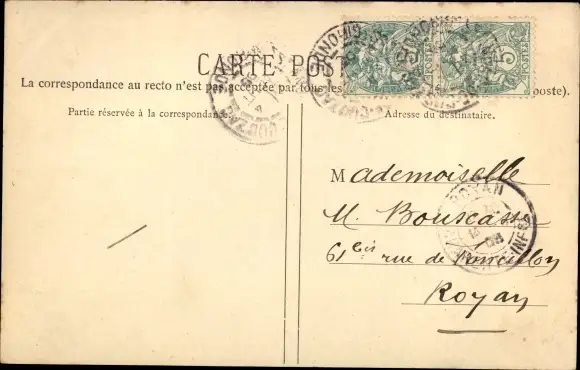 CARTE POST
La correspondance au recto n'est pas acceptée par tous les poste).
Partie réservée à la correspondance.
Adresse du destinataire.
Mademoiselle
M. Bouscasse
61 bis rue de Foncillon
Royan
ROYAN